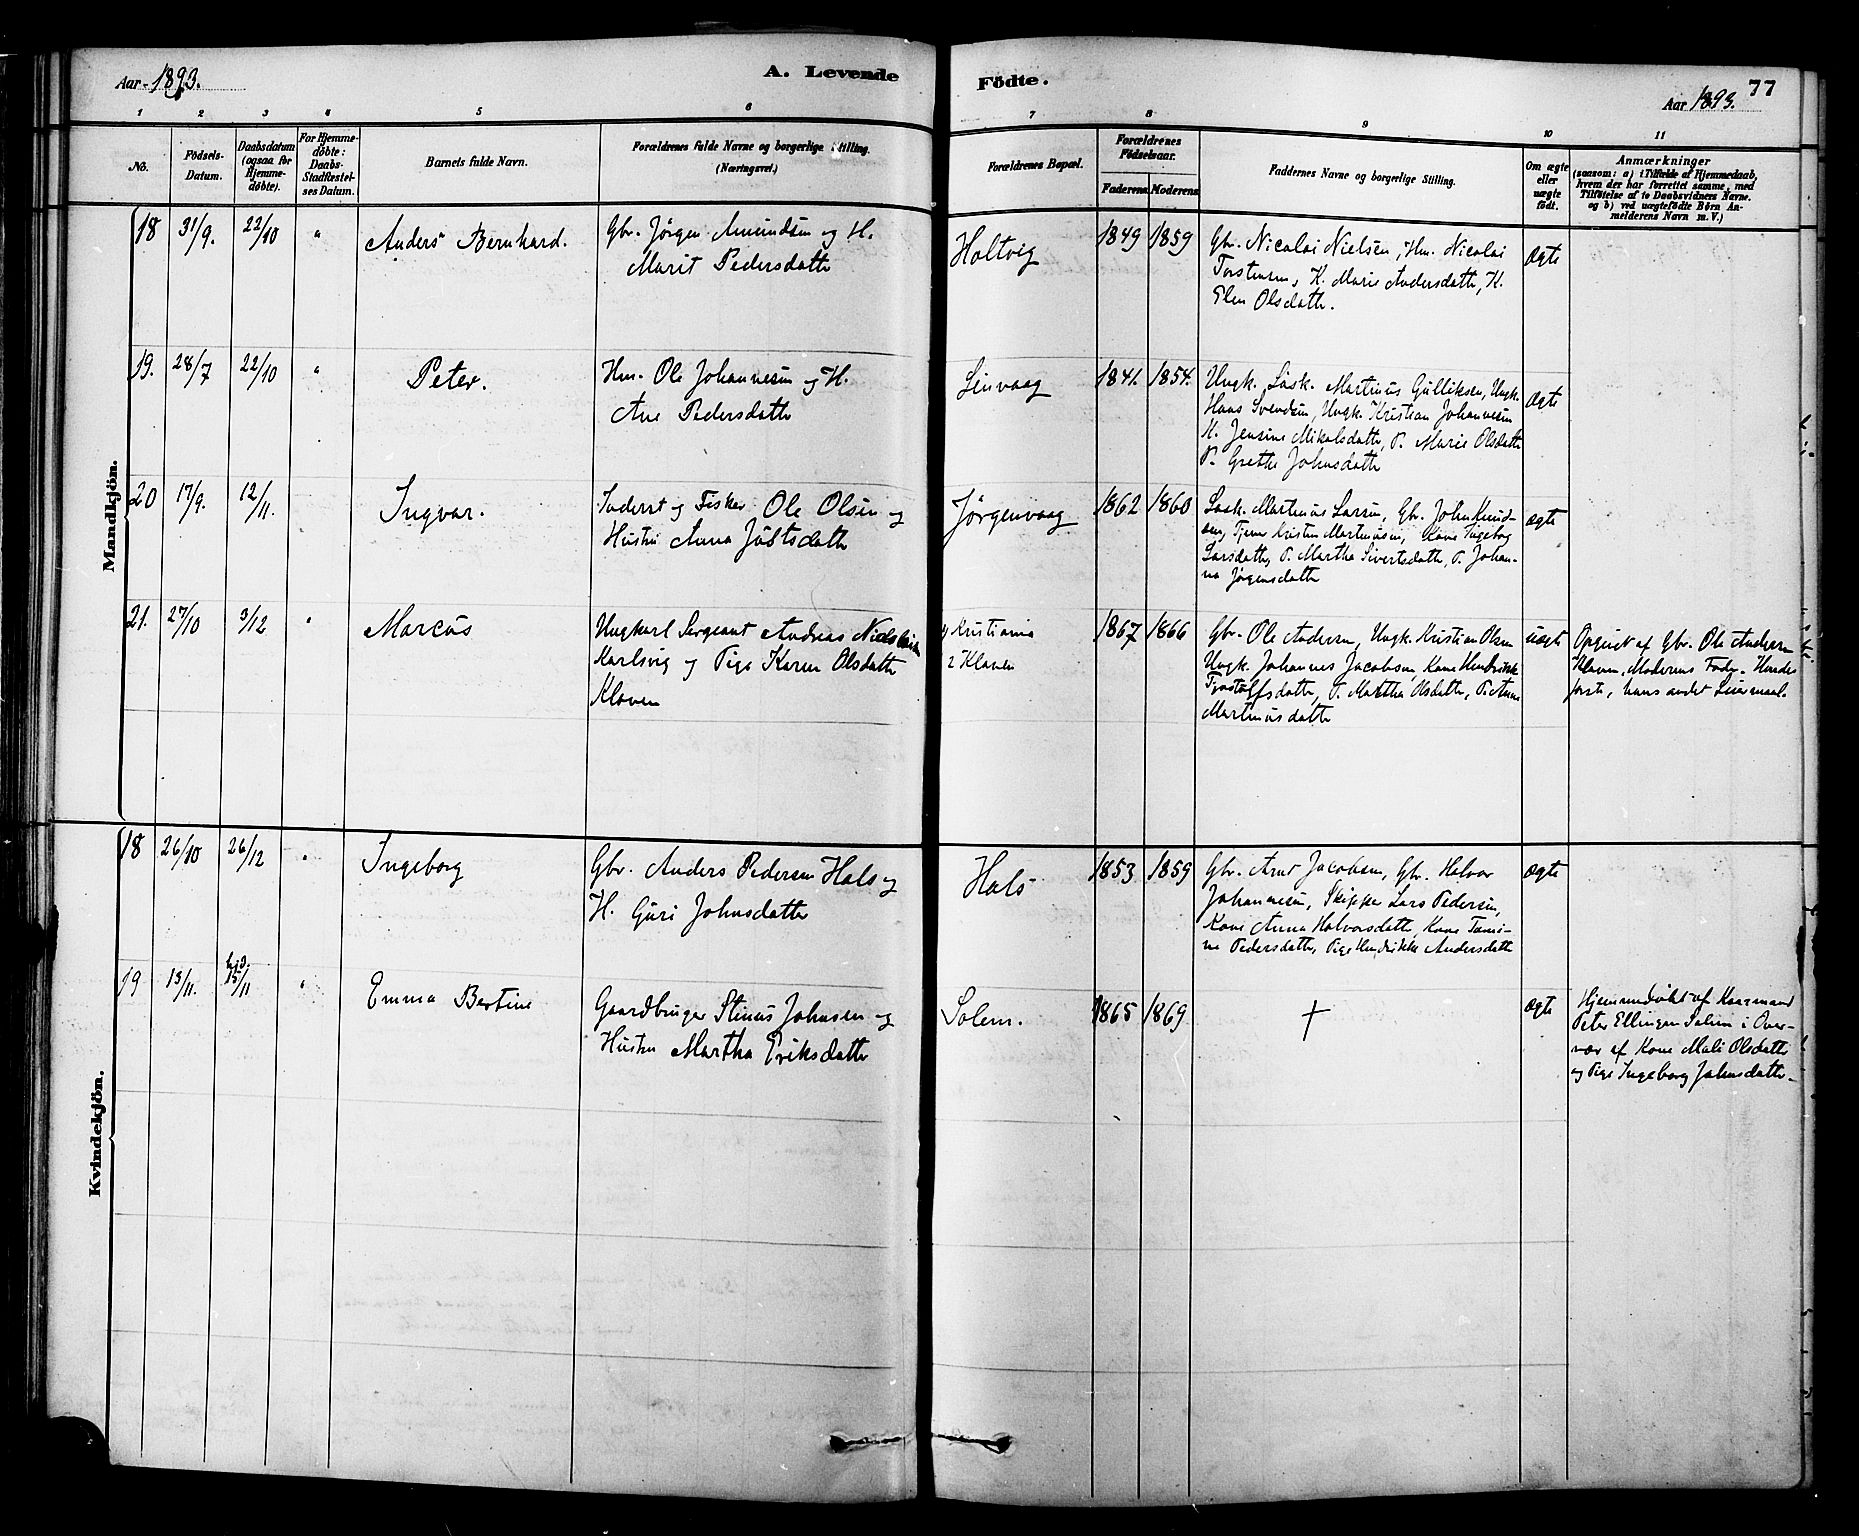 Aar 1893.
A. Levende
Födte.
77
Aar 1893.
1 2 3 4 5 6 7 8 9 10 11
No.
Födsels-
Datum.
Daabsdatum
(ogsaa for
Hjemme-
döbte).
For Hjemme-
döbte:
Daabs-
Stadfæstel-
ses Datum.
Barnets fulde Navn.
Forældrenes fulde Navne og borgerlige Stilling.
(Næringsvei.)
Forældrenes Bopæl.
Forældrenes
Födselsaar.
Faderens. Moderens.
Faddernes Navne og borgerlige Stilling.
Om ægte
eller
uægte
födt.
Anmærkninger
(saasom: a) i Tilfælde af Hjemmedaab,
hvem der har forrettet samme, med
Tilföielse af to Daabsvidners Navne.
og b) ved uægtefödte Börn An-
melderens Navn m. V.)
Mandkjön.
18 31/9. 22/10 " Anders Bernhard.
Gbr. Jørgen Amundsen og H.
Marit Pedersdatter
Holtvig
1849 1859
Gbr. Nicolai Nielsen, Hm. Nicolai
Torstensen, K. Marie Andersdatter, K.
Elen Olsdatter.
Ægte
19. 28/7 22/10 " Peter.
Hm. Ole Johannesen og H.
Ane Pedersdatter
Leirvaag
1841. 1854.
Ungk. Martinus Gulliksen, Ungk.
Hans Svendsen, Ungk. Kristian Johannesen
K. Jensine Mikalsdatter, P. Marie Olsdatter
P. Grethe Johnsdatter
Ægte
20 17/9. 12/11. Ingvar.
Inderst og Fisker Ole Olsen og
Hustru Anna
Jørgenvaag
1862 1860
Martinus Larsen, Gbr. John Knud-
sen, Tjener Kristen Martinusen, Kone Ingeborg
Larsdatter, P. Martha Sivertsdatter, P. Johan-
na Jørgensdatter
ægte
21. 27/10 3/12 " Marcus
Ungkarl Sergeant Andreas
Karlsvig og Pige Karen Olsdatter
Klaven
1) Kristiania
2 Klaven
1867 1866
Gbr. Ole Andersen, Ungk. Kristian Olsen
Ungk. Johannes Jacobsen, Kone Hendrikke
P. Martha Olsdatter, P. Anne
Martinusdatter
uægte
Opgivet af Gbr. Ole Andersen
Klaven, Moderens Fader. Hendes
første, hans andet Leiermaal.
Kvindekjön.
18 26/10 26/12 " Ingeborg
Gbr. Anders Pedersen Hals og
H. Guri Johnsdatter
Hals
1853 1859
Gbr. Arnt Jacobsen, Gbr. Halvor
Johannesen, Skipper Lars Pedersen,
Kone Anna Halvorsdatter, Kone
Pedersdatter, Pige Hendrikke Andersdatter
Ægte
19 13/11. hjd. 15/11 " Emma Bertine
Gaardbruger Stinus Johnsen og
Hustru Martha Eriksdatter
Solem.
1865 1869
†
ægte
Hjemmedøbt af Kaarmand
Peter Ellingsen Solem i Over-
vær af Kone Mali Olsdatter
og Pige Ingeborg Johnsdatter.